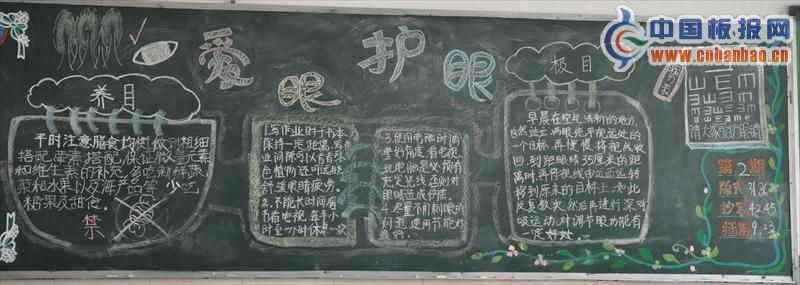 中国板报网
www.cnbanbao.cn
爱眼护眼
养目
平时注意膳食均衡,做到粗细
搭配,荤素搭配,保证微量元素
和维生素的补充,多吃新鲜蔬
菜和水果以及海产品等,少吃
糖果及甜食。
禁
1.写作业时书本
保持一定距离,写作
业间隙可以看绿
色植物还可以缓
解眼睛疲劳。
2.不能长时间看
书看电视,每半小
时至一小时休息一次
3.使用电脑时间
看电视,
玩电脑是必须有
充足光线,否则对
眼睛造成伤害。
4.尽量不用刺眼的
灯光,使用节能灯
最好。
极目
早晨在空气清新的地方,
自然站立,两眼先平视远处的
一个目标,再慢慢将视线收
回,到距眼睛35厘米的距
离时再将视线由近而远转
移到原来的目标上,如此
反复数次,然后再进行深呼
吸运动,对调节眼功能有
一定好处。
第2期
版式 31.36
抄写 42.45
插图 9.23